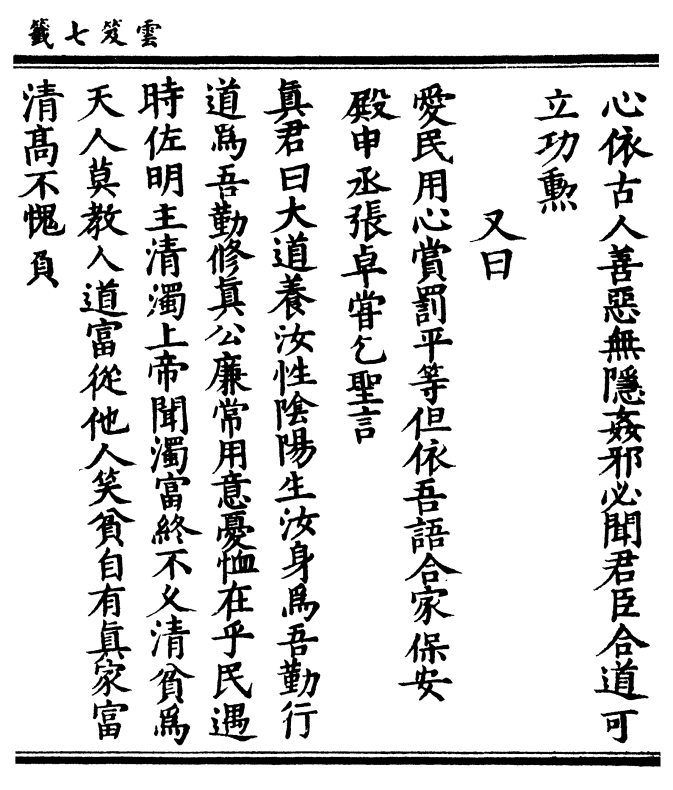 雲笈七籤
心依古人善惡無隱姦邪必聞君臣合道可
立功勲
又曰
愛民用心賞罰平等但依吾語合家保安
殿中丞張卓甞乞聖言
眞君曰大道養汝性陰陽生汝身爲吾勤行
道爲吾勤修眞公廉常用意憂恤在乎民遇
時佐明主清濁上帝聞濁富終不久清貧爲
天人莫教人道富從他人笑貧自有眞家富
清髙不愧負